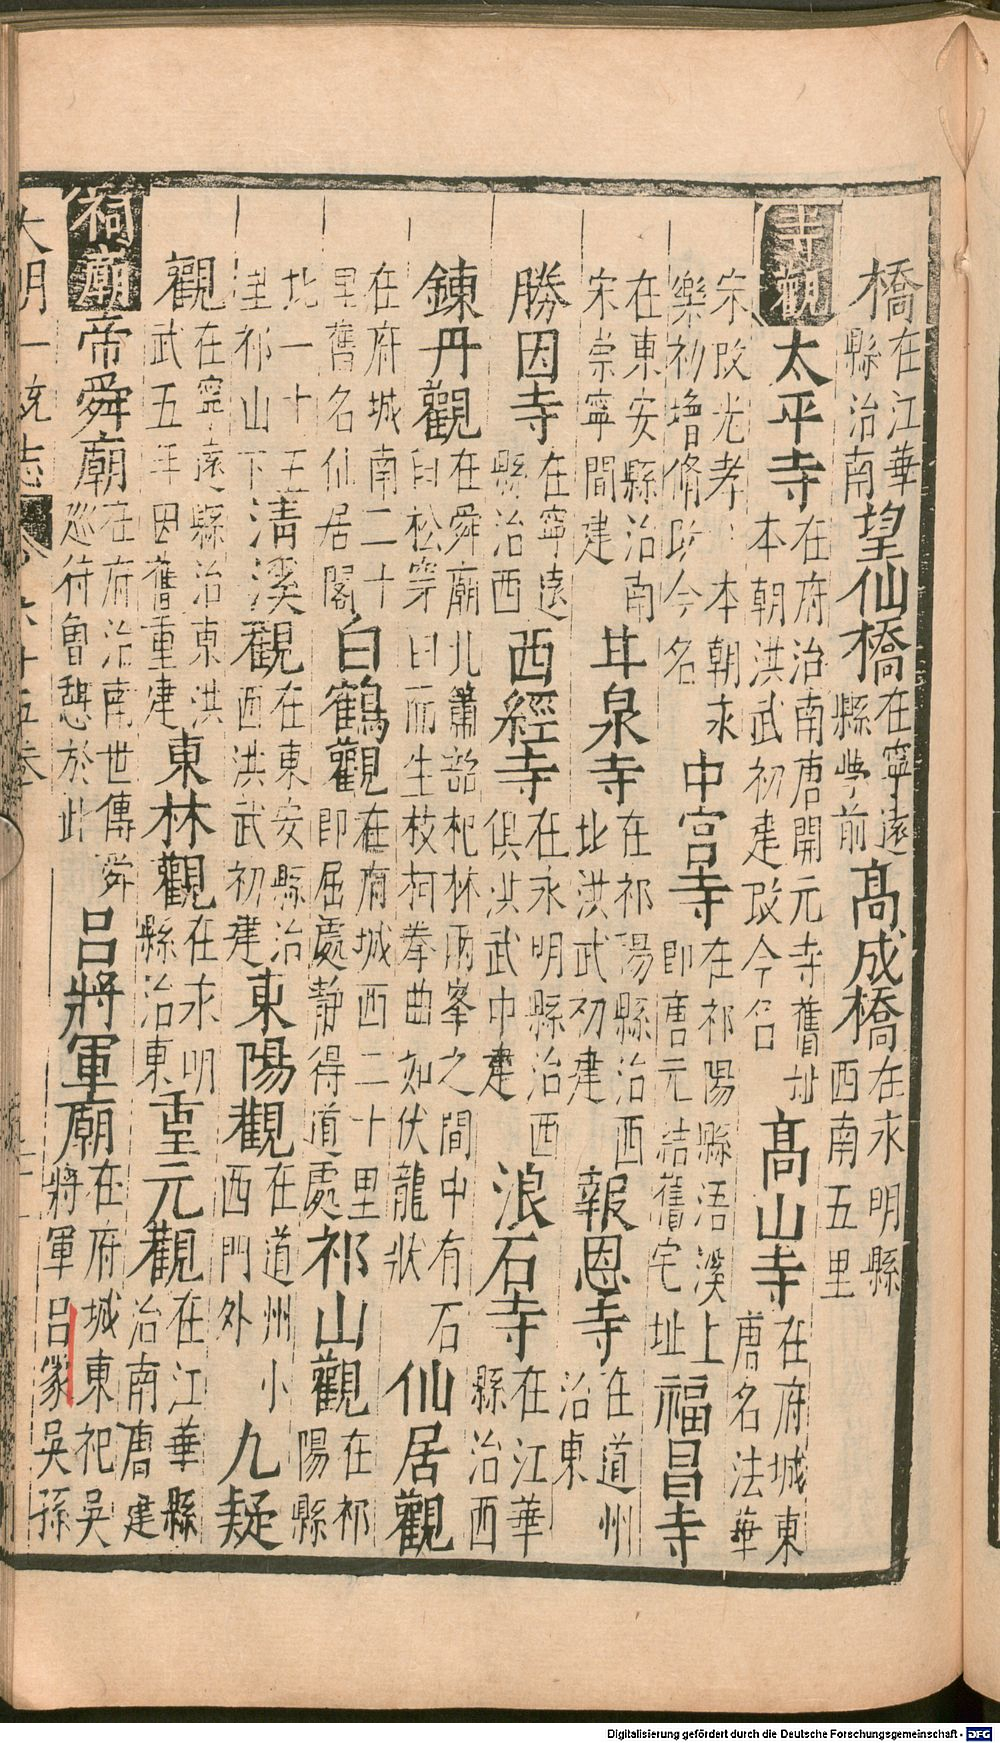 橋在江華縣治南望仙橋在寧遠縣學前高成橋在永明縣西南五里
寺觀太平寺在府治南唐開元寺舊址本朝洪武初建改今名高山寺在府城東唐名法華
宋改光孝本朝永樂初增脩改今名中宮寺在祁陽縣浯溪上即唐元結舊宅址福昌寺
在東安縣治南宋崇寧間建甘泉寺在祁陽縣治西北洪武初建報恩寺在道州治東
勝因寺在寧遠縣治西西經寺在永明縣治西俱洪武中建浪石寺在江華縣治西
鍊丹觀在舜廟北簫韶杞林兩峯之間中有石臼松穿臼而生枝柯拳曲如伏龍狀仙居觀
在府城南二十里舊名仙居閣白鶴觀在府城西二十里即屈處静得道處祁山觀在祁陽縣
北一十五里祁山下清溪觀在東安縣治西洪武初建東陽觀在道州小西門外九疑
觀在寧遠縣治東洪武五年因舊重建東林觀在永明縣治東重元觀在江華縣治南唐建
祠廟帝舜廟在府治南世傳舜巡狩曾憩於此呂將軍廟在府城東祀吳將軍呂蒙吳孫
大明一統志 六十五卷
Digitalisierung gefördert durch die Deutsche Forschungsgemeinschaft - DFG